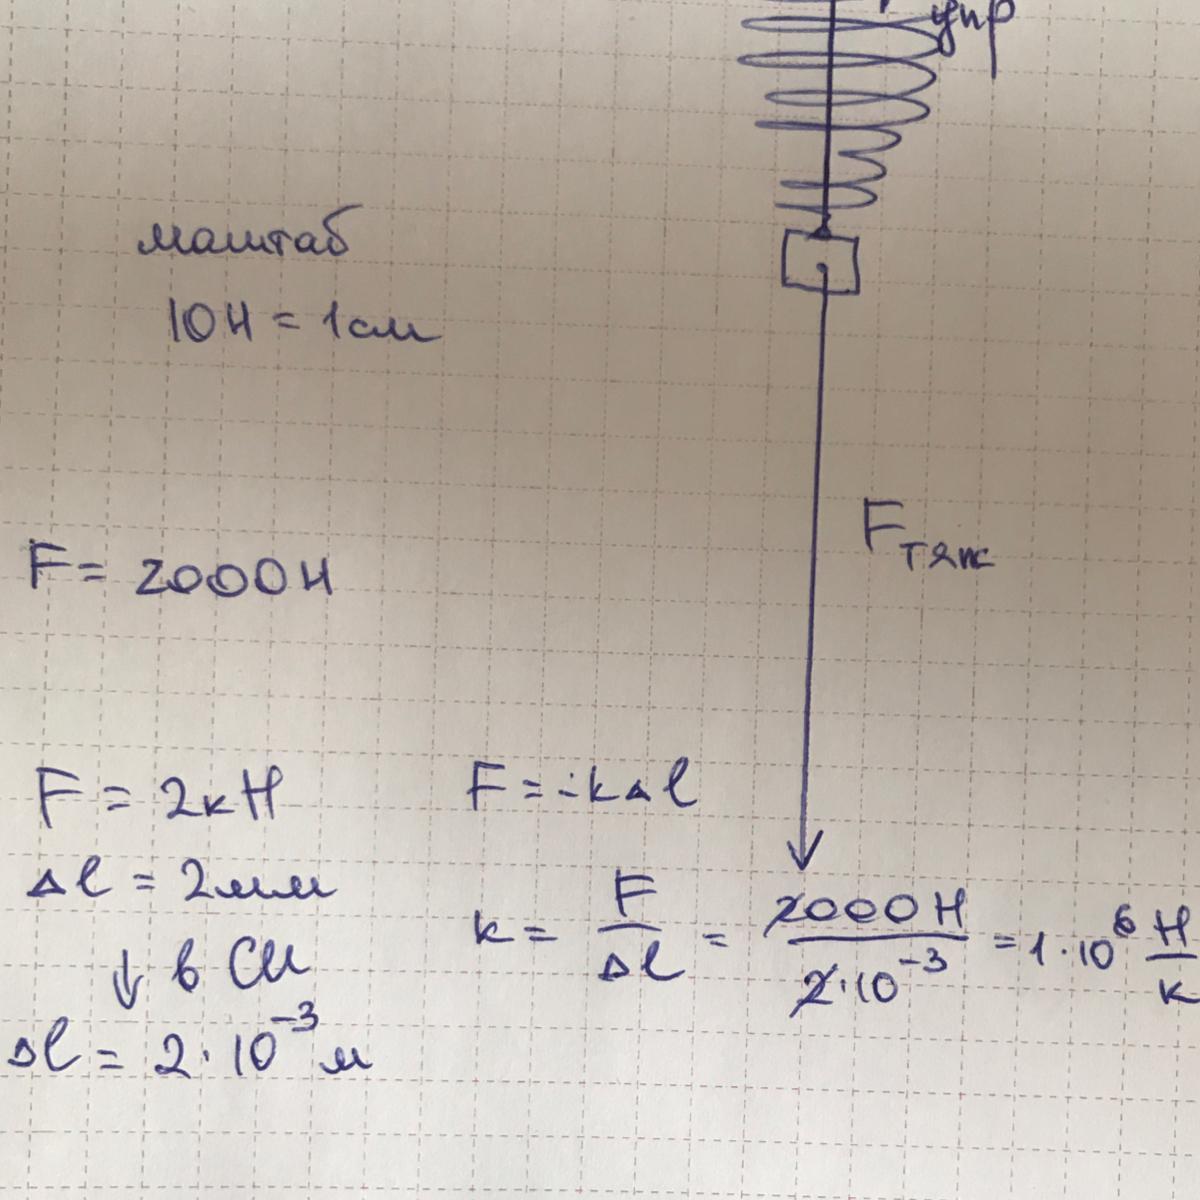 упр
маштаб
10Н = 1см
Fтяж
F = 2000Н
F = 2кН
Δl = 2мм
↓ в СИ
Δl = 2·10⁻³ м
F = -kΔl
k = F/Δl = 2000Н/2·10⁻³ = 1·10⁶ Н/к